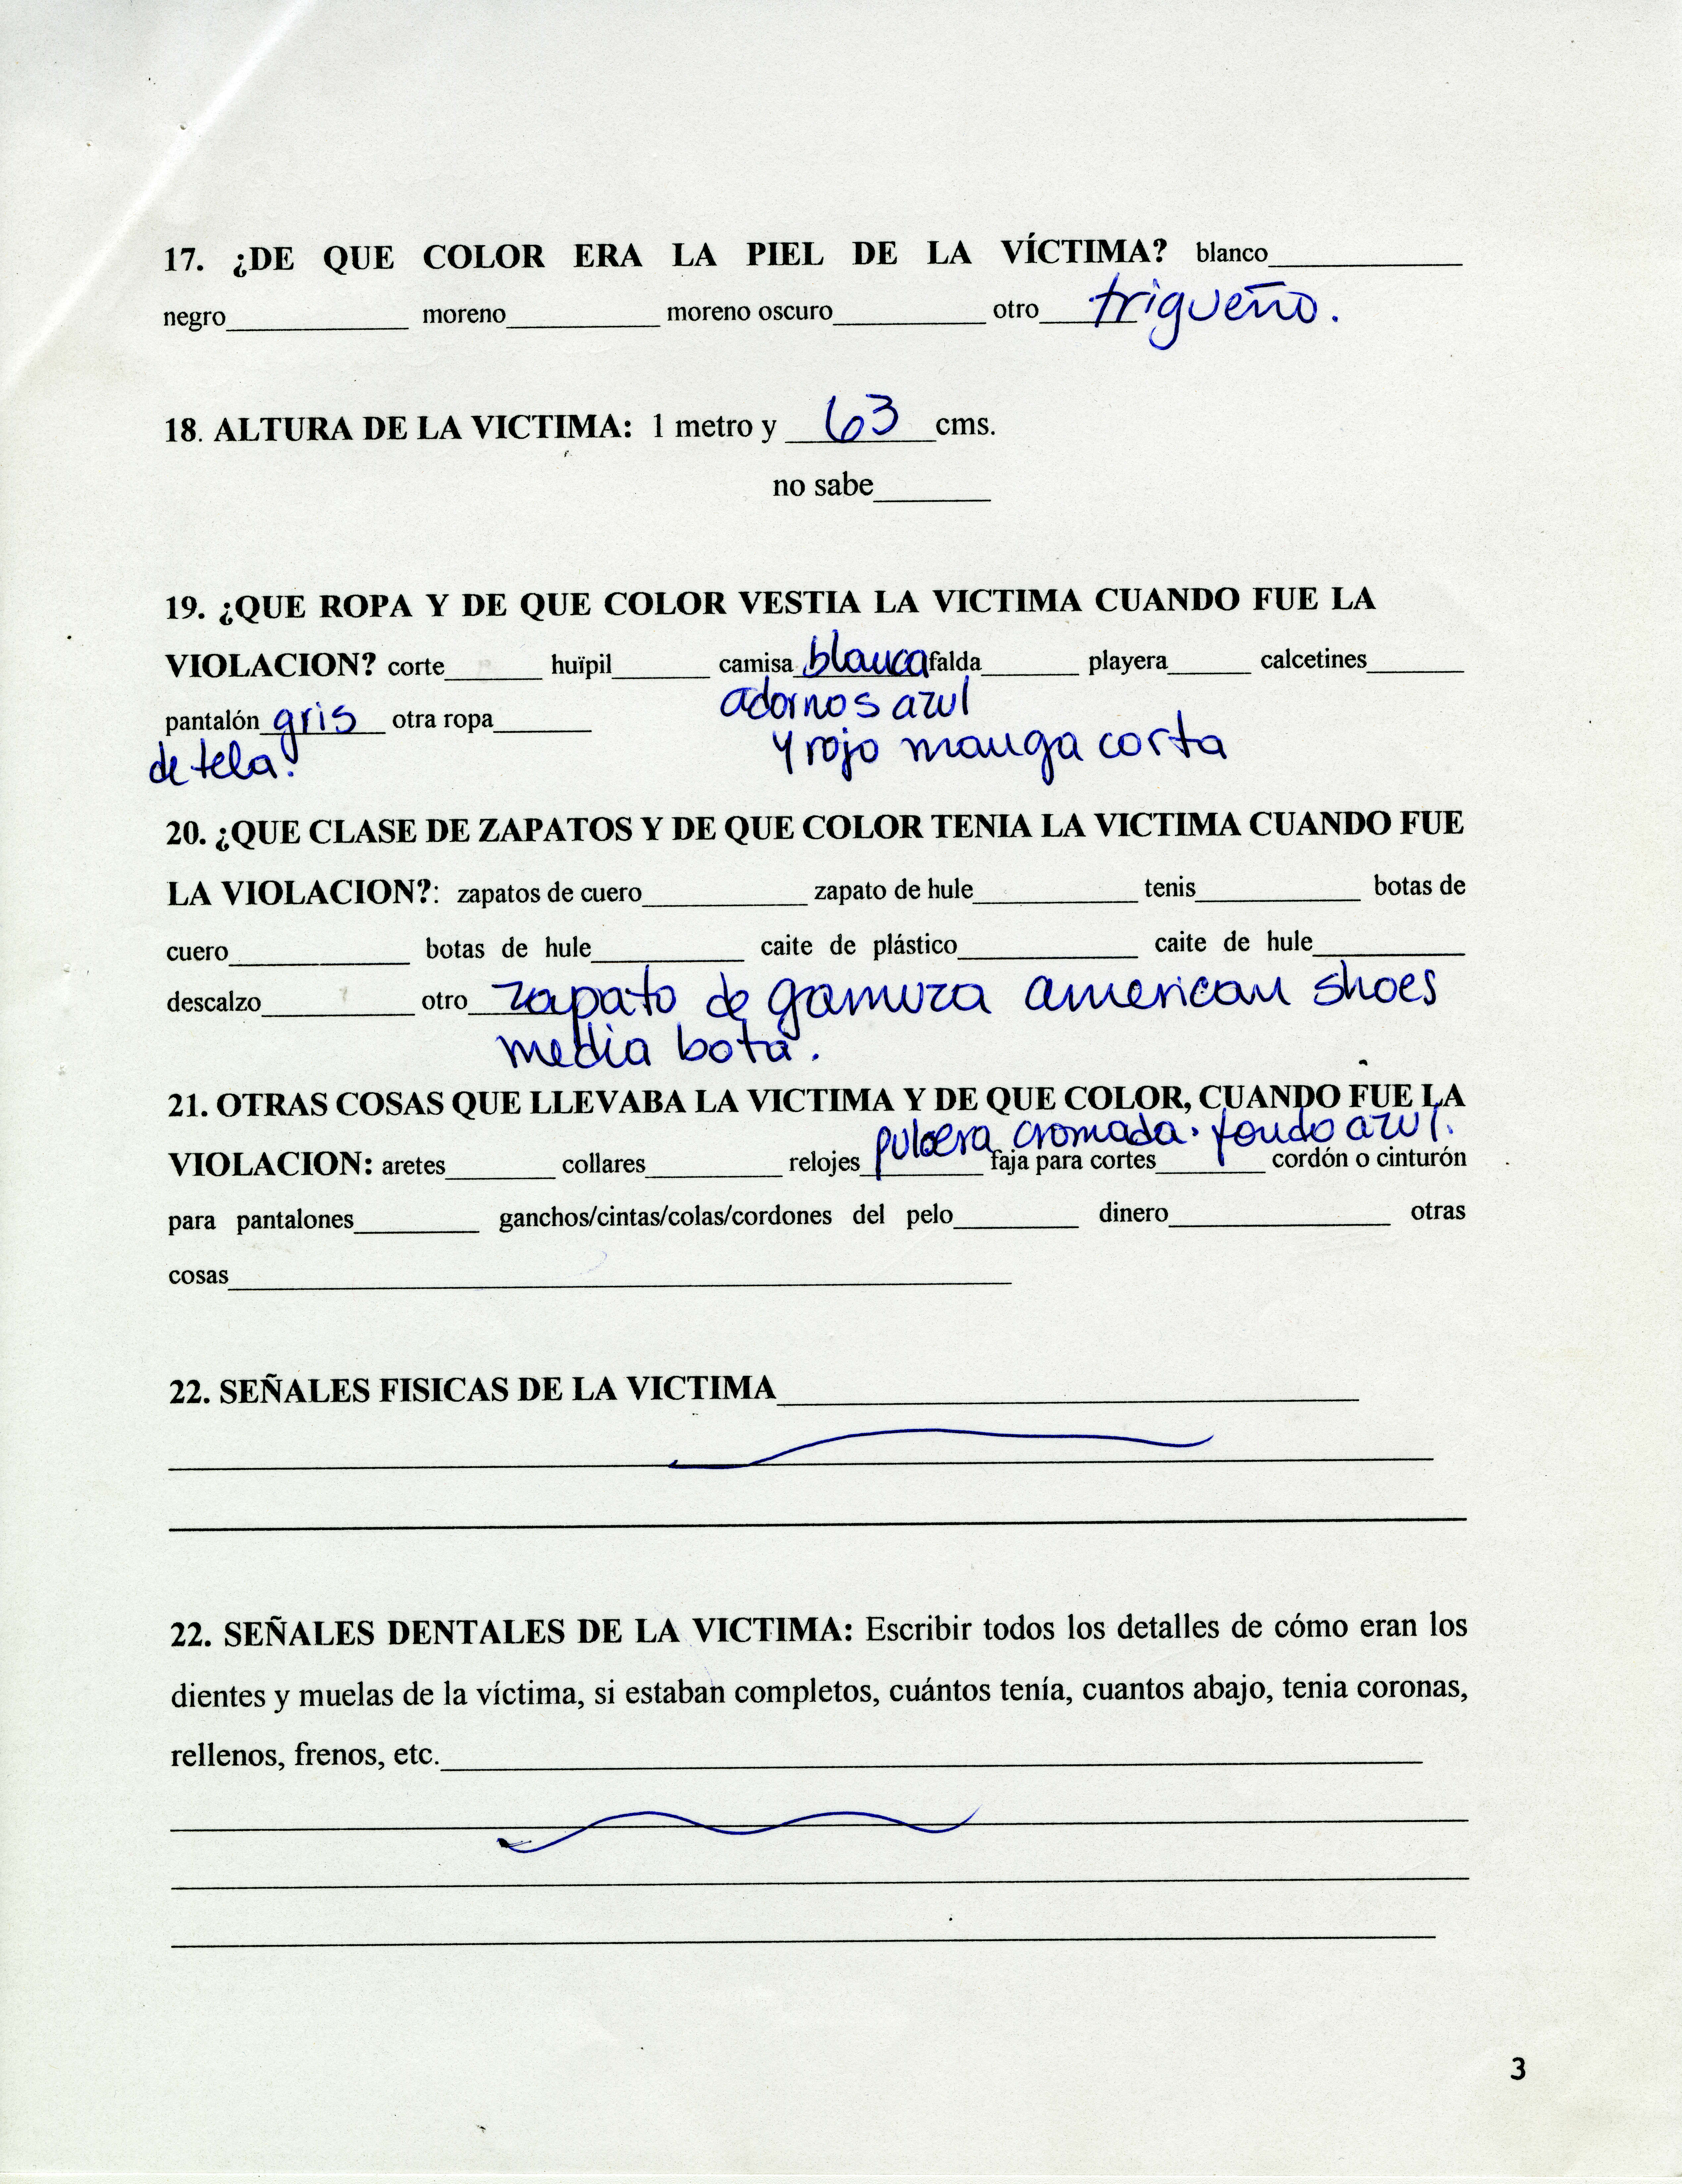 17. ¿DE QUE COLOR ERA LA PIEL DE LA VÍCTIMA? blanco______
negro______ moreno______ moreno oscuro______ otro trigueño.
18. ALTURA DE LA VICTIMA: 1 metro y 63 cms.
no sabe______
19. ¿QUE ROPA Y DE QUE COLOR VESTIA LA VICTIMA CUANDO FUE LA
VIOLACION? corte______ huïpil______ camisa blanca falda______ playera______ calcetines______
adornos azul
pantalón gris otra ropa______
y rojo manga corta
de tela.
20. ¿QUE CLASE DE ZAPATOS Y DE QUE COLOR TENIA LA VICTIMA CUANDO FUE
LA VIOLACION?: zapatos de cuero______ zapato de hule______ tenis______ botas de
cuero______ botas de hule______ caite de plástico______ caite de hule______
descalzo______ otro zapato de gamuza american shoes
media bota.
21. OTRAS COSAS QUE LLEVABA LA VICTIMA Y DE QUE COLOR, CUANDO FUE LA
pulcera cromada. fondo azul.
VIOLACION: aretes______ collares______ relojes______ faja para cortes______ cordón o cinturón
para pantalones______ ganchos/cintas/colas/cordones del pelo______ dinero______ otras
cosas______
22. SEÑALES FISICAS DE LA VICTIMA______
22. SEÑALES DENTALES DE LA VICTIMA: Escribir todos los detalles de cómo eran los
dientes y muelas de la víctima, si estaban completos, cuántos tenía, cuantos abajo, tenia coronas,
rellenos, frenos, etc.______
3